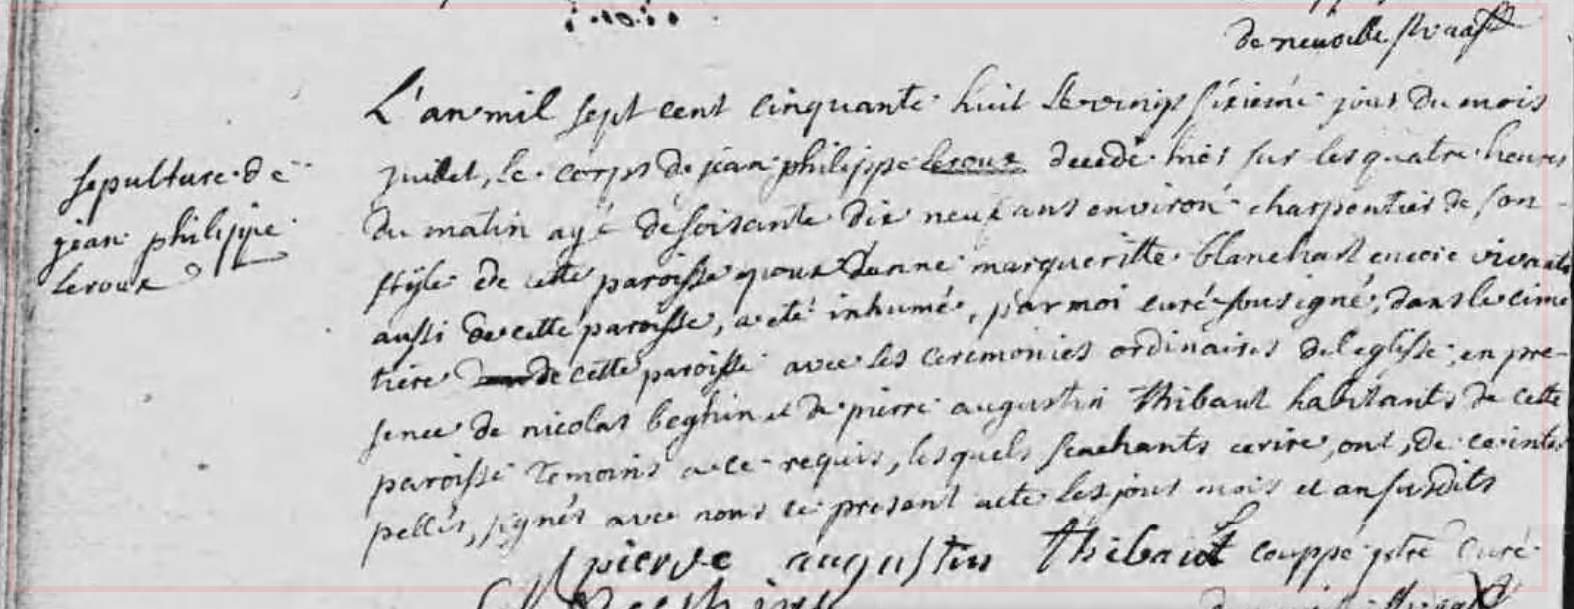 de neuville st vaast
L'an mil sept cent cinquante huit le vingt sixieme jour du mois
juillet, le corps de jean philippe leroux decedé hier sur les quatre heures
du matin agé de soisante dix neuf ans environ charpentier de son
style de cette paroisse epoux danne margueritte blanchart encore vivante
aussi de cette paroisse, a eté inhumé, par moi curé sousigné, dans le cime
tiere de cette paroisse avec les ceremonies ordinaires de leglisse, en pre-
sence de nicolas beghin et de pierre augustin thibaut habitants de cette
paroisse temoins a ce requis, lesquels scachants ecrire, ont, de ce inter
pellés, signés avec nous ce present acte les jour mois et an susdits
sepulture de
jean philippe
leroux
pierre augustin Thibaut couppé ptre curé